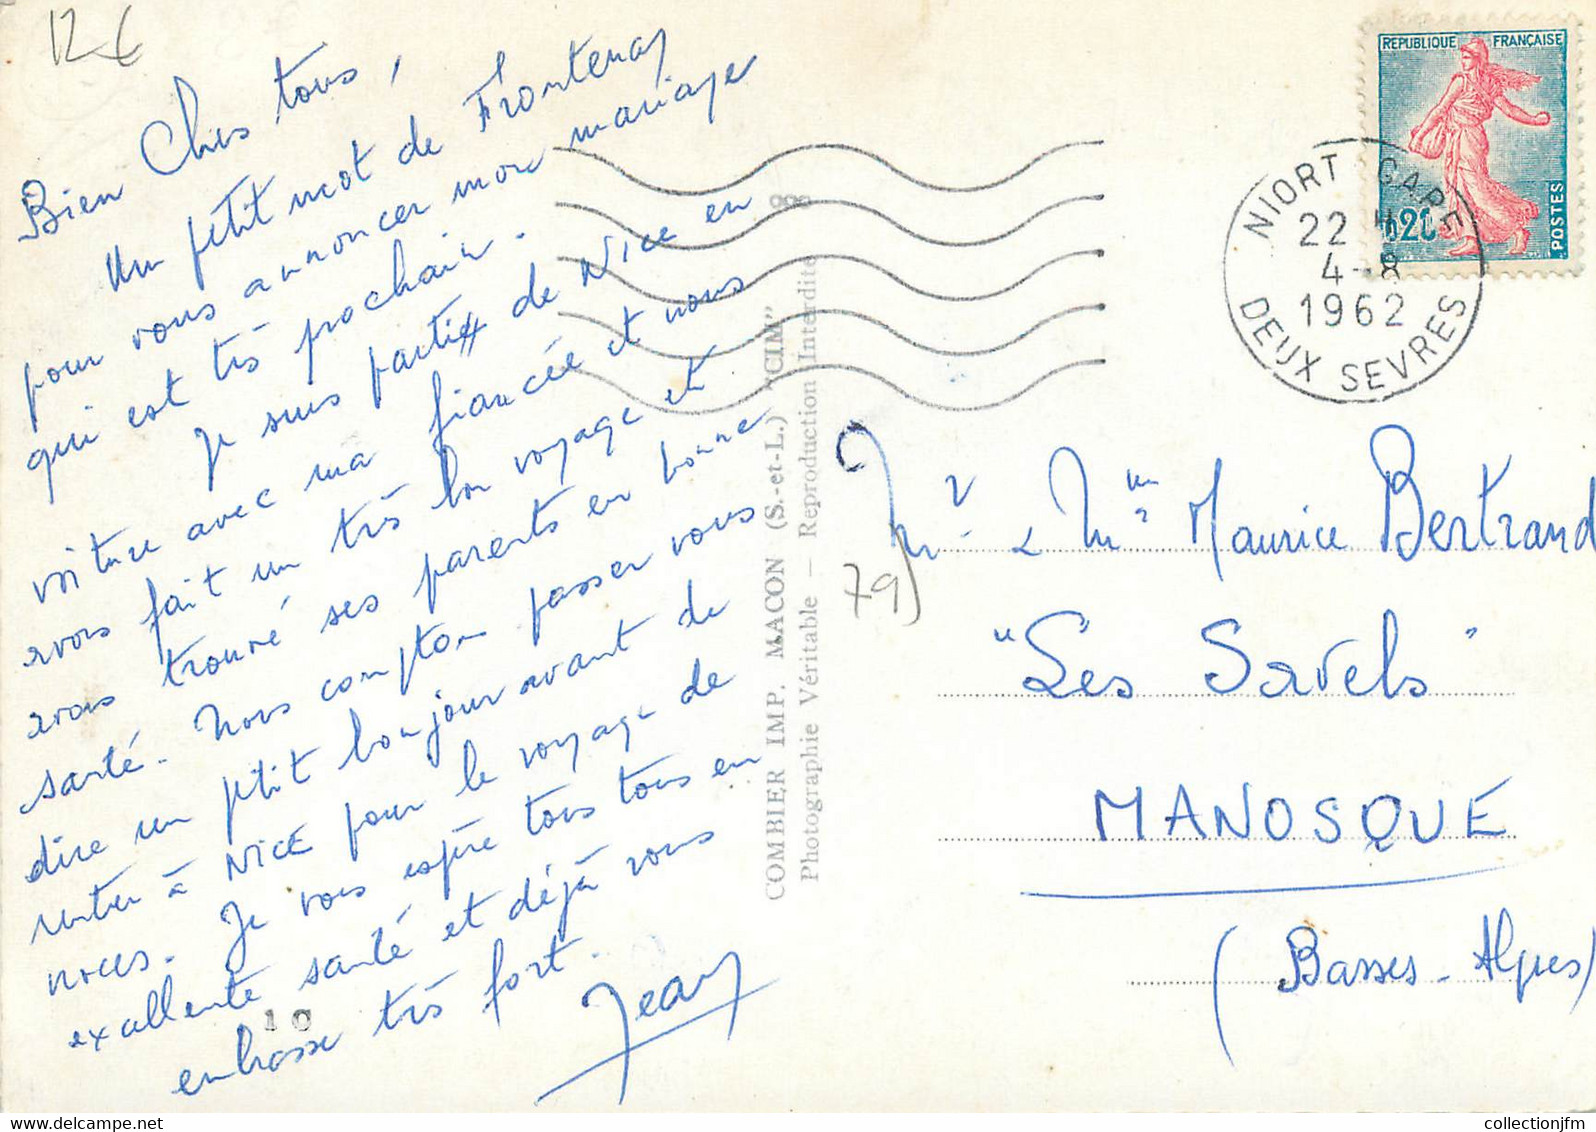 12 €
Bien Chers tous,
Un petit mot de Frontenay
pour vous annoncer mon mariage
qui est très prochain.
Je suis parti de Nice en
voiture avec ma fiancée et nous
avons fait un très bon voyage et
avons trouvé ses parents en bonne
santé. Nous comptons passer vous
dire un ptit bonjour avant de
rentrer à NICE pour le voyage de
noces. Je vous espère tous tous en
exallente santé et déjà vous
embrasse très fort.
Jean
10
COMBIER IMP. MACON (S.-et-L.) "CIM"
Photographie Véritable — Reproduction Interdite
REPUBLIQUE FRANÇAISE
0,20
POSTES
NIORT GARE
22 H
4-8
1962
DEUX SEVRES
79)
Mr & Mme Maurice Bertrand
"Les Savels"
MANOSQUE
(Basses-Alpes)
collectionjfm